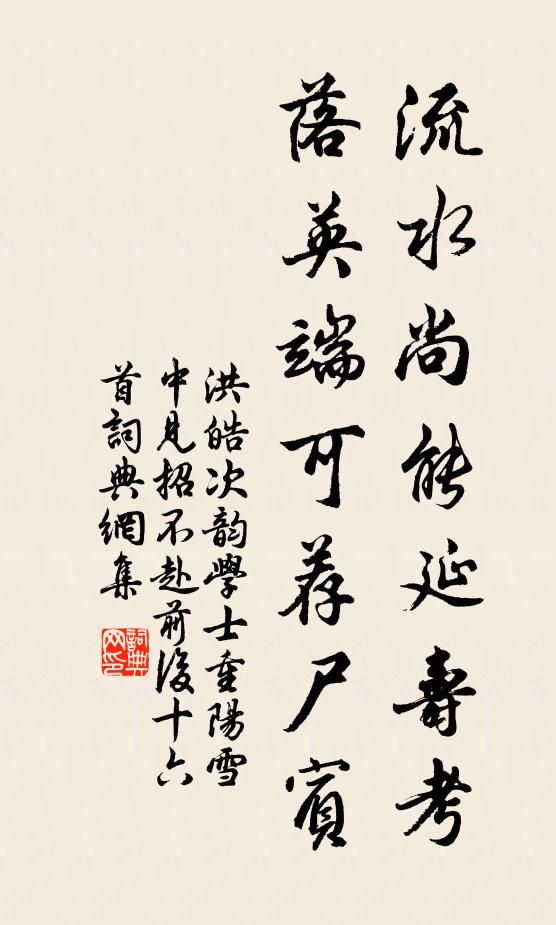 流水尚能延壽考
落英端可荐尸賓
洪皓次韵學士重陽雪
中見招不赴前後十六
首詞典網集
詞典网印